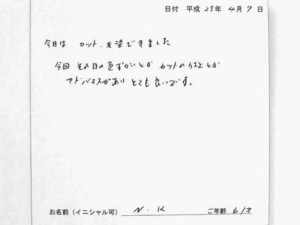 日付 平成 28年 4月 9日
今日は カット、毛染できました
今回 その日の色づかいとか カットの仕方とか
アドバイスがあり とても良いです。
お名前(イニシャル可) N.K ご年齢 61才